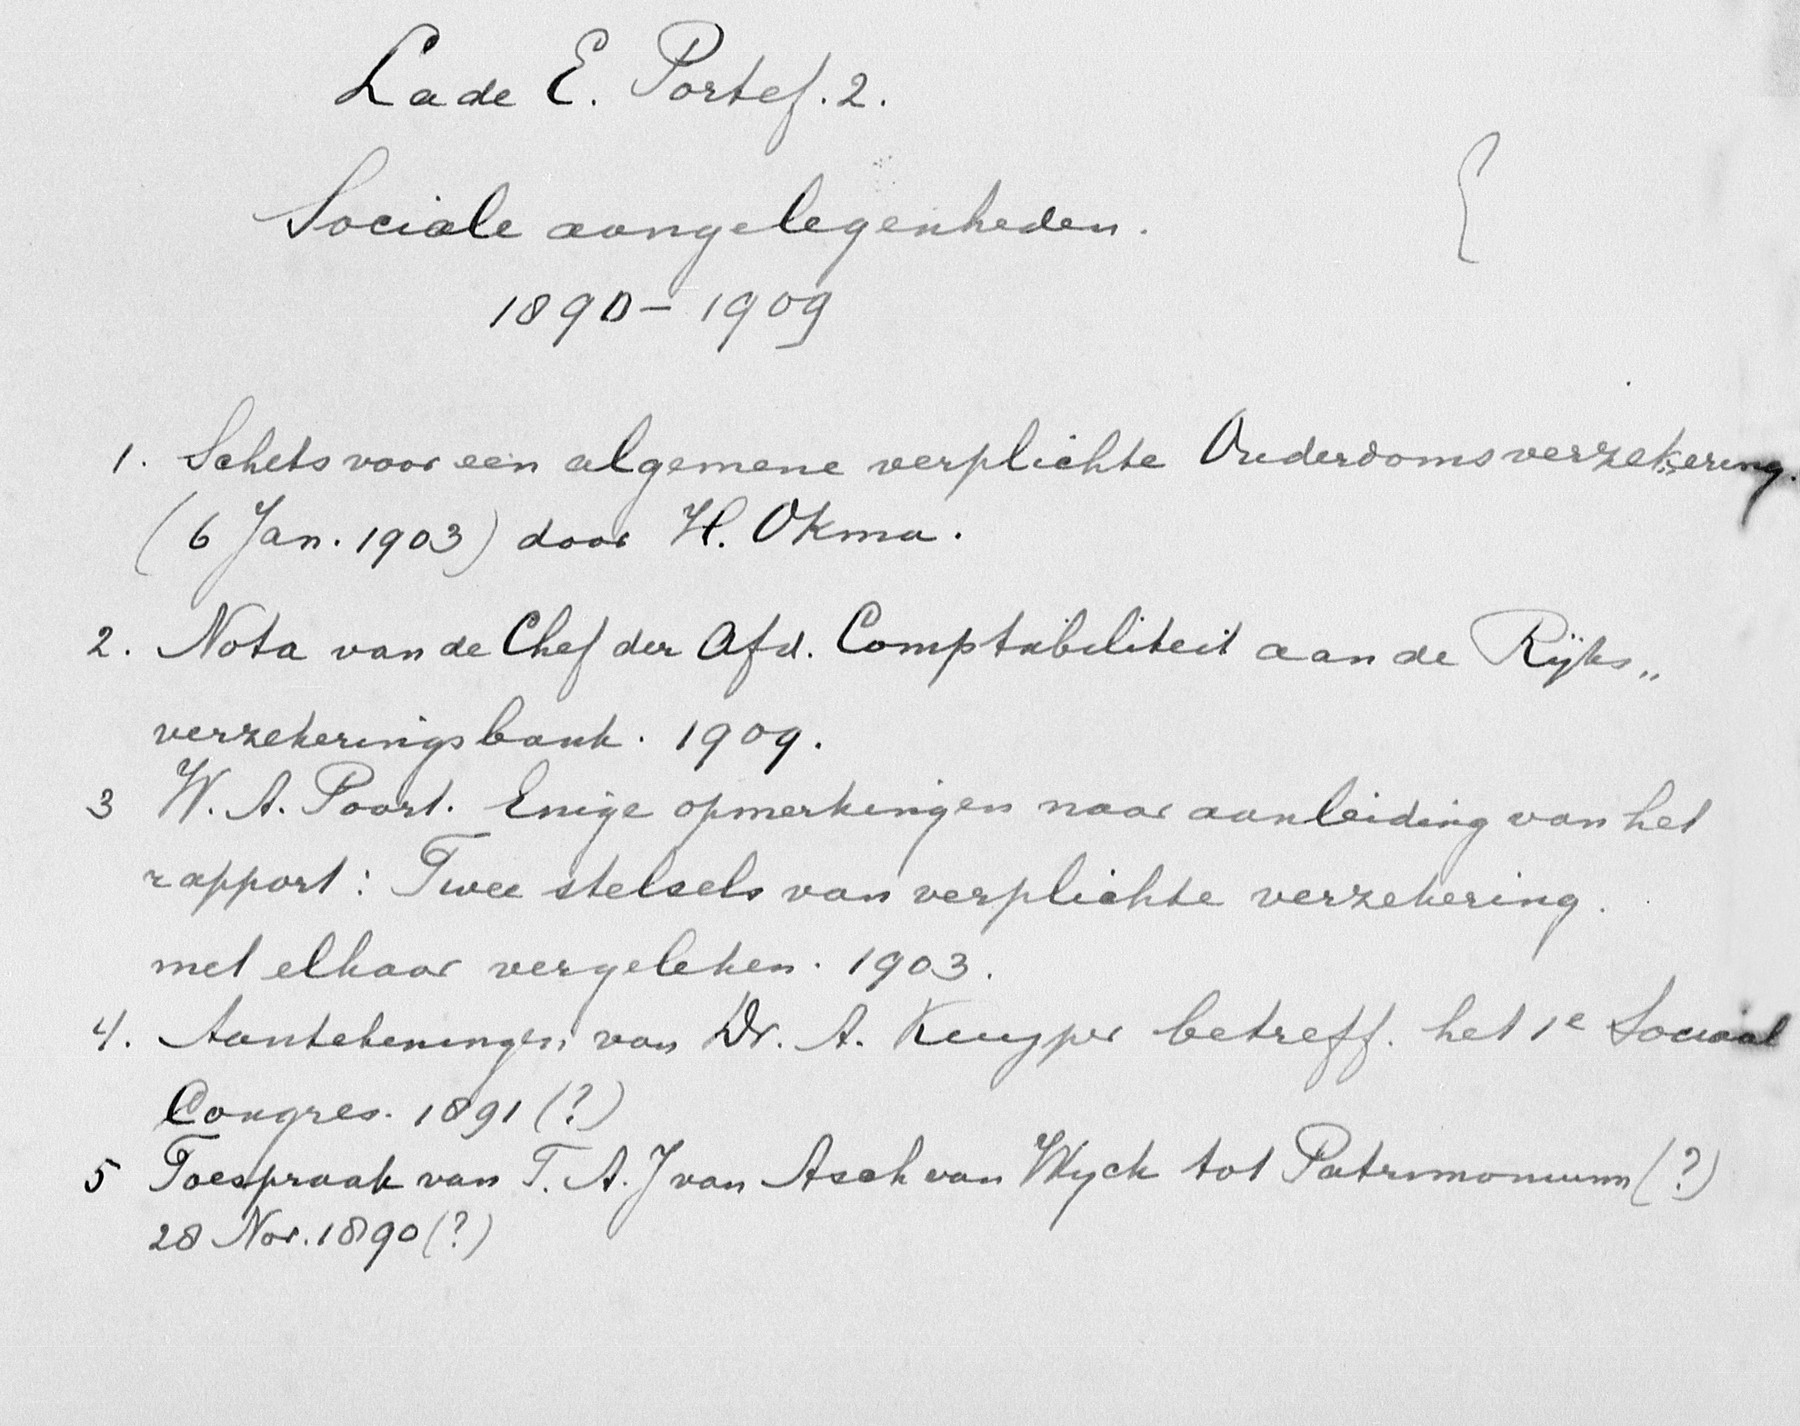 Lade E. Portef. 2.
Sociale aangelegenheden.
1890 – 1909
1. Schets voor een algemene verplichte Ouderdomsverzekering.
(6 Jan. 1903) door H. Okma.
2. Nota van de Chef der Afd. Comptabiliteit aan de Rijks„
verzekeringsbank. 1909.
3 W. A. Poort. Enige opmerkingen naar aanleiding van het
rapport: Twee stelsels van verplichte verzekering.
met elkaar vergeleken. 1903.
4. Aantekeningen van Dr. A. Kuyper betreff. het 1e Sociaal
Congres. 1891 (?)
5 Toespraak van T. A. J van Asch van Wyck tot Patrimonium (?)
28 Nov. 1890 (?)